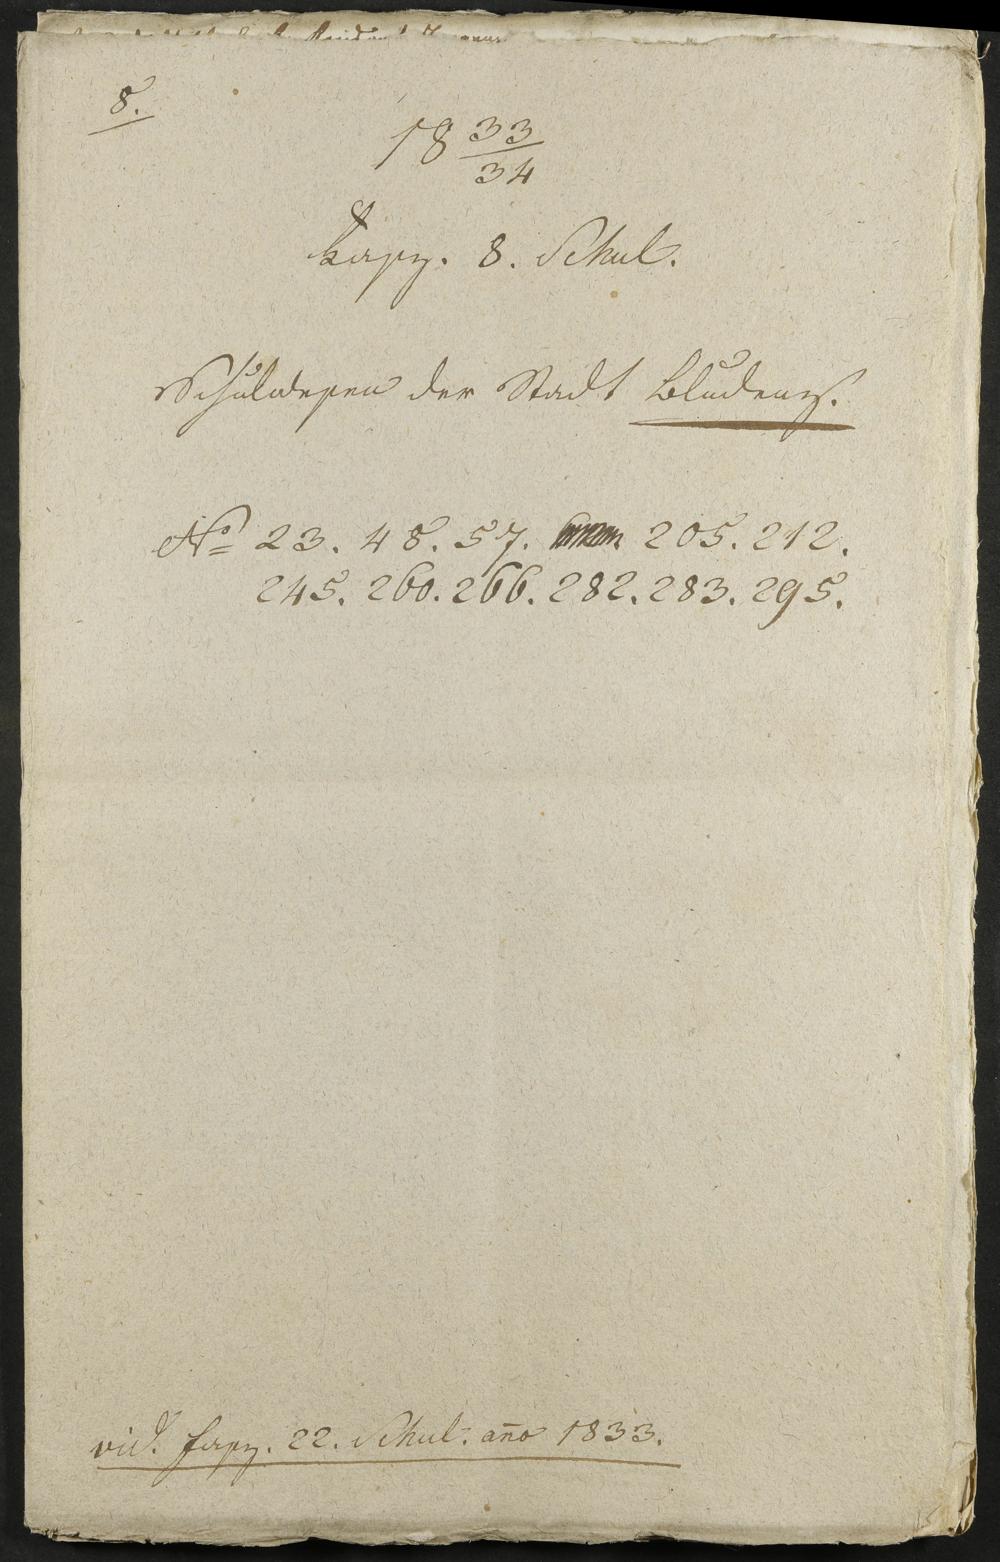 8.
18 33/34
Fasz. 8. Schul.
Schulwesen der Stadt Bludenz.
No 23. 48. 57. 205. 212.
245. 260. 266. 282. 283. 295.
vid. fasz. 22. Schul. año 1833.